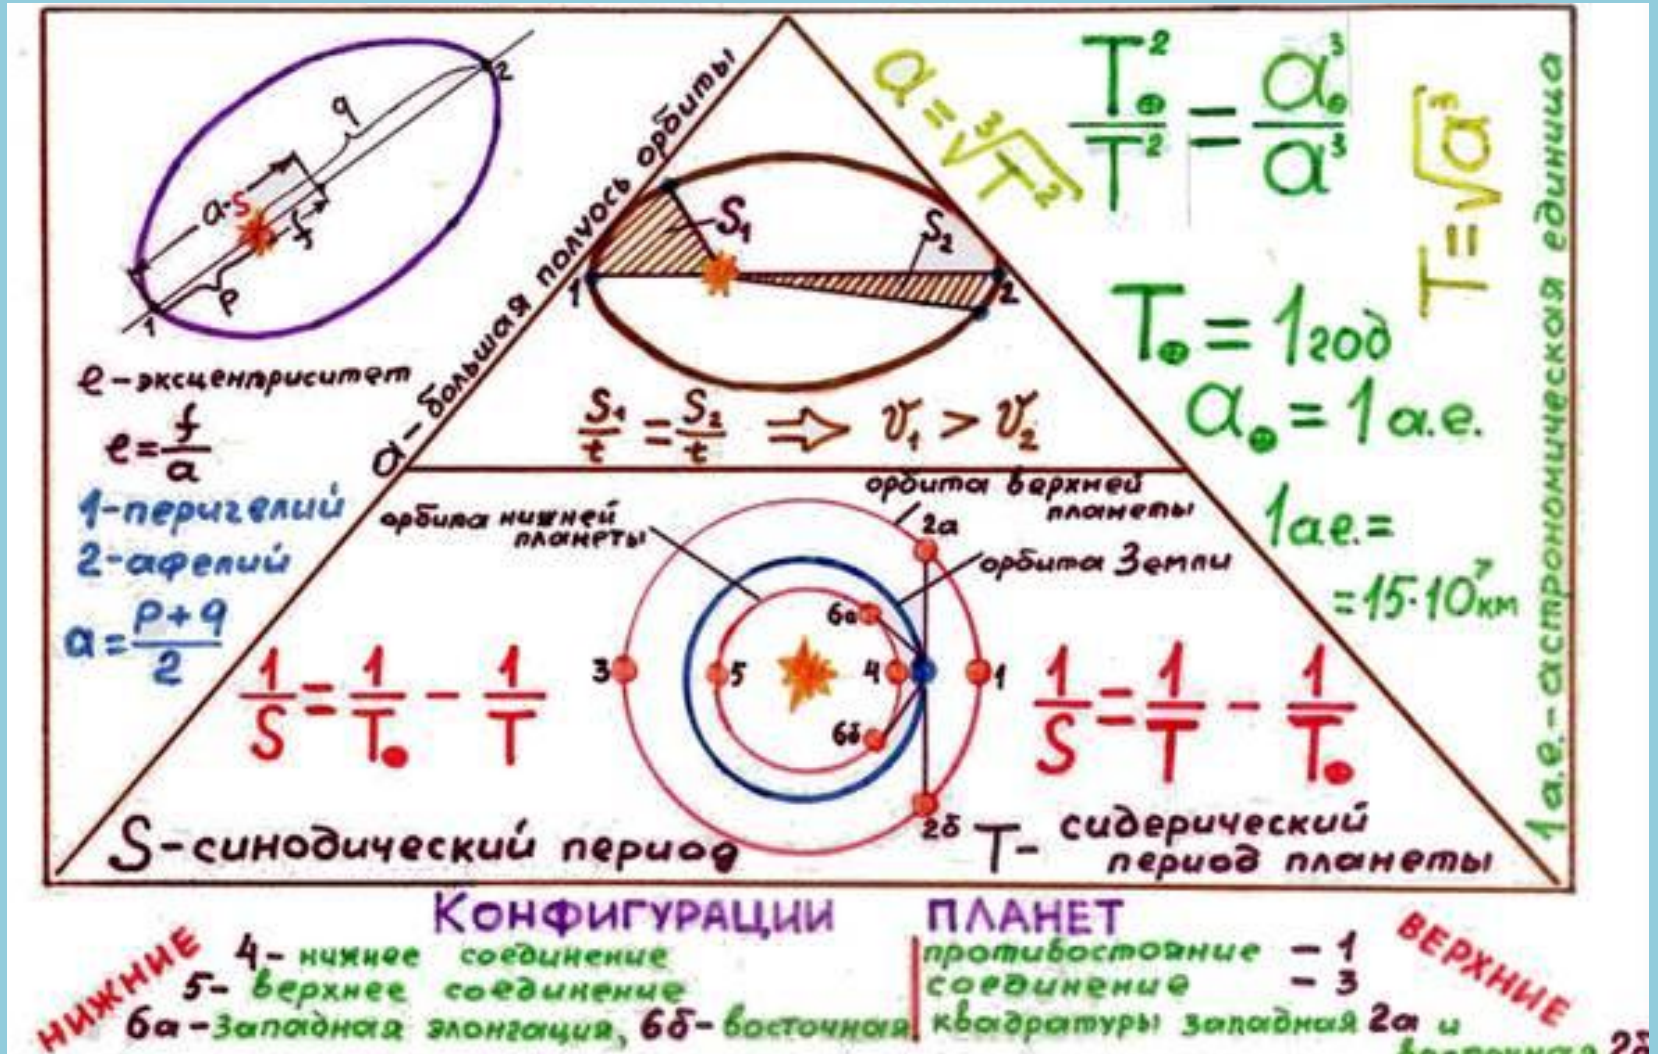 q
2
a
S
f
p
1
e-эксцентриситет
e = f/a
1-перигелий
2-афелий
a = (p+q)/2
a-большая полуось орбиты
S₁
S₂
1
2
S₁/t = S₂/t ⇒ v₁ > v₂
a = ∛T²
T⊕²/T² = a⊕³/a³
T = √a³
T⊕ = 1год
a⊕ = 1 а.е.
1 а.е. =
= 15·10⁷ км
1 а.е.- астрономическая единица
орбита нижней
планеты
орбита верхней
планеты
орбита Земли
2а
6а
3
5
4
1
6б
2б
1/S = 1/T⊕ - 1/T
1/S = 1/T - 1/T⊕
S-синодический период
T- сидерический
период планеты
Конфигурации планет
НИЖНИЕ
4- нижнее соединение
5- верхнее соединение
6а-Западная элонгация, 6б-восточная
противостояние - 1
соединение - 3
квадратуры западная 2а и
восточная 2б
ВЕРХНИЕ